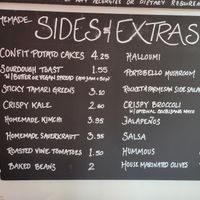 ALLERGIES OR DIETARY REQUIREM
HOMEMADE SIDES & EXTRAS
CONFIT POTATO CAKES 4.25
SOURDOUGH TOAST 1.55
W/ BUTTER OR VEGAN SPREAD
STICKY TAMARI GREENS 3.10
CRISPY KALE 2.60
HOMEMADE KIMCHI 3.95
HOMEMADE SAUERCRAUT 3.95
ROASTED VINE TOMATOES 1.50
BAKED BEANS 2
HALLOUMI
PORTOBELLO MUSHROOM
ROCKET & PARMESAN SIDE SALAD
CRISPY BROCCOLI
W/ OPTIONAL GOCHUJANG MAYO
JALAPEÑOS
SALSA
HUMMOUS
HOUSE MARINATED OLIVES